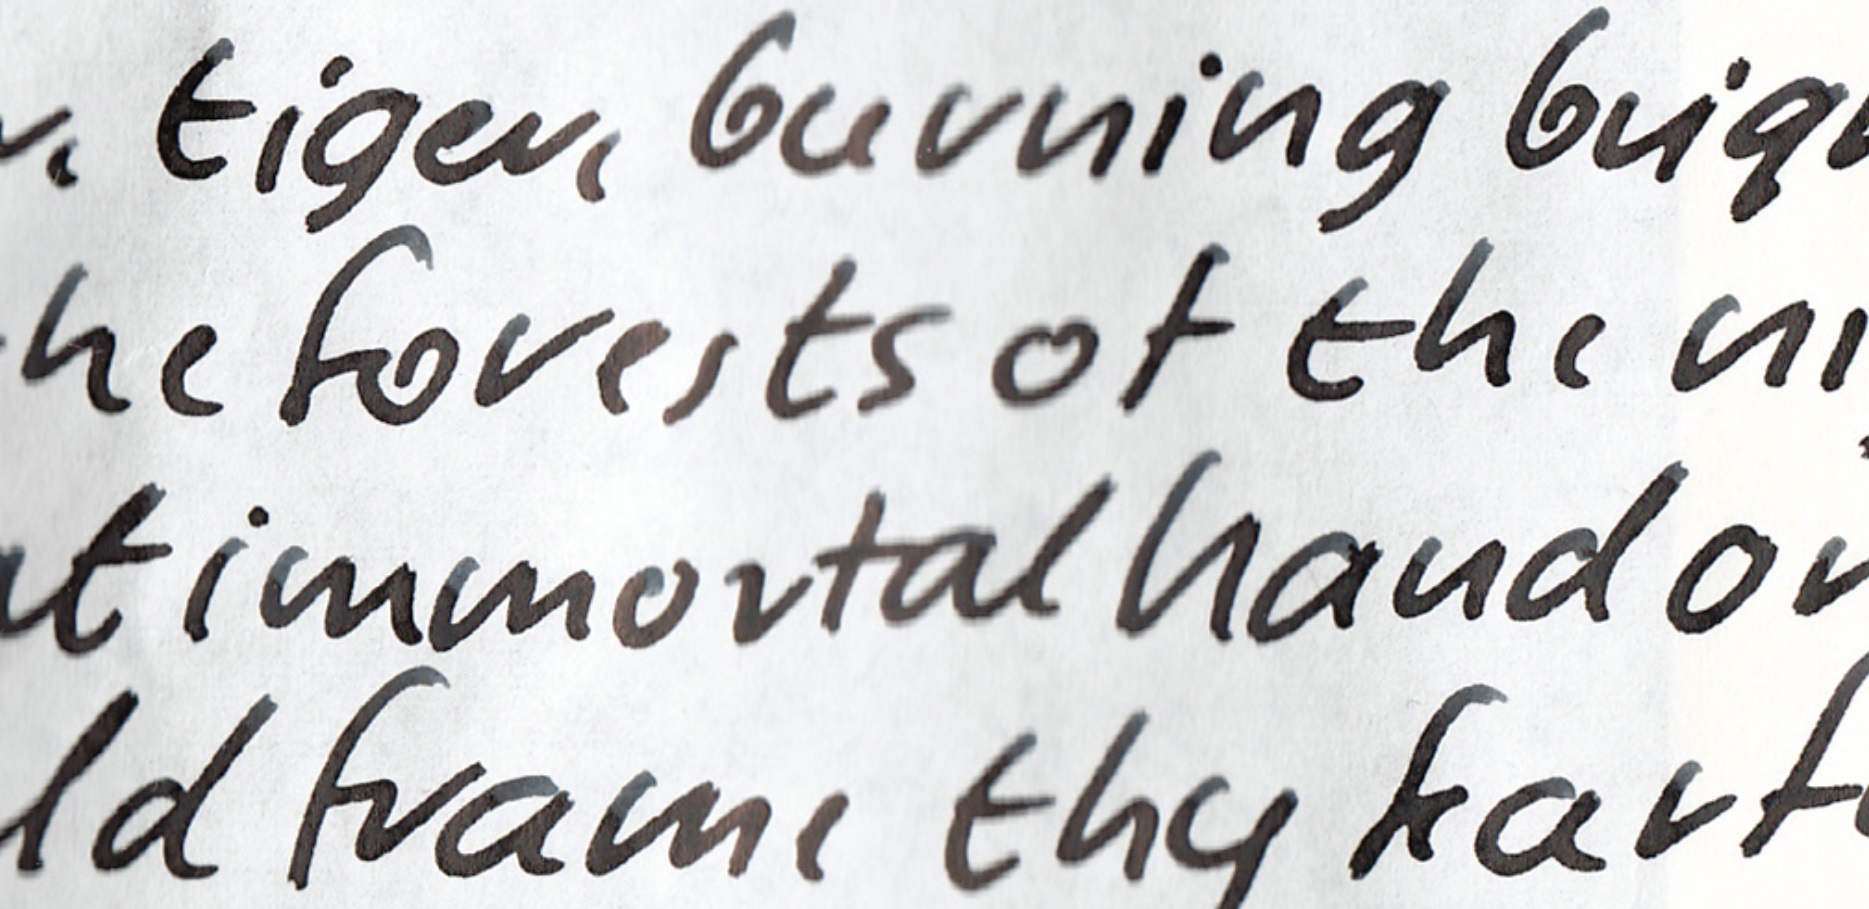 r. tiger, burning brigh
he forests of the ni
at immortal hand or
ld frame thy fearfu